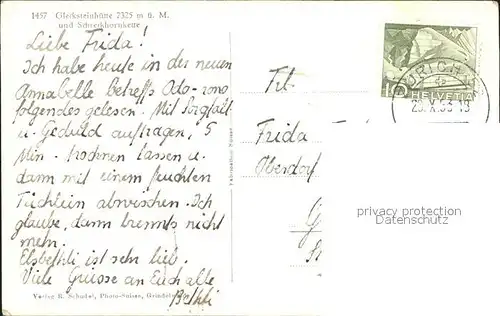 1457 Glecksteinhütte 2325 m ü. M.
und Schreckhornkette
Liebe Frida!
Ich habe heute in der neuen
Annabelle betreffs Odo-rono
folgendes gelesen. Mit Sorgfalt
u. Geduld auftragen, 5
Min. trocknen lassen u.
dann mit einem feuchten
Tüchlein abwischen. Ich
glaube, dann brennts nicht
mehr.
Elsbethli ist sehr lieb.
Viele Grüsse an Euch alle
Verlag R. Schudel, Photo-Suisse, Grindelwald
Frl.
Frida
Oberdorf
10
HELVETIA
ZÜRICH
X.53
privacy protection
Datenschutz